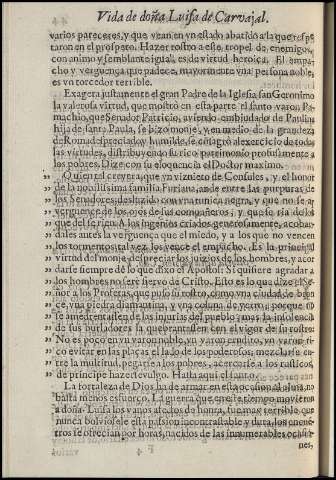 Vida de doña Luisa de Carvajal.
varios pareceres, y que vean en vn estado abatido a la que respe
taron en el prospero. Hazer rostro a este tropel de enemigos,
con animo y semblante igual, es de virtud heroica. El empa-
cho y verguença que padece, mayormente vna persona noble,
es vn torcedor terrible.
Exagera justamente el gran Padre de la Iglesia san Geronimo
la valerosa virtud, que mostrò en esta parte el santo varon Pa-
machio, que Senador Patricio, aviendo embiudado de Paulina
hija de santa Paula, se hizo monje, y en medio de la grandeza
de Roma despreciado y humilde, se entregò al exercicio de todas
las virtudes, distribuyendo su rico patrimonio prosusamente a
los pobres. Dize con su eloquencia el Doctor maximo.
,, Quien tal creyera, que vn viznieto de Consules, y el honor
,, de la nobilissima familia Furiana, ande entre las purpuras de
,, los Senadores deslucido con vna tunica negra, y que no se a
,, verguence de los ojos de sus compañeros, y que se ria de los
,, que del se rien? A los ingenios criados generosamente, acobar
,, dales antes la verguença que el miedo, y a los que no vencen
,, los tormentos, tal vez los vence el empacho. Es la primera
,, virtud del monje, despreciar los juizios de los hombres, y acor
,, darse siempre de lo que dixo el Apostol: Si quisiere agradar a
,, los hombres no serè siervo de Cristo. Esto es lo que dize el Se-
,, ñor a los Profetas, que puso su rostro, como vna ciudad de bron
,, ce, vna piedra diamantina, y vna coluna de yerro; porque no
,, se amedrentassen de las injurias del pueblo; mas la insolencia
,, de sus burladores la quebrantassen con el vigor de su rostro.
,, No es poco en vn varon noble, vn varon erudito, vn varon ri-
,, co evitar en las plaças el lado de los poderosos, mezclarse en-
,, tre la multitud, pegarse a los pobres, acercarse a los rusticos,
,, de principe hazerse vulgo. Hasta aqui el santo.
La fortaleza de Dios ha de armar en esta ocasion al alma, no
basta menos esfuerço. La guerra que en este tiempo movieron
a doña Luisa los vanos afectos de honra, fue mas terrible, que
nunca bolviò el este passion incontrastable y dura, los encuen-
tros se ofrecian por horas, nacidos de las innumerables ocasio-
nes,